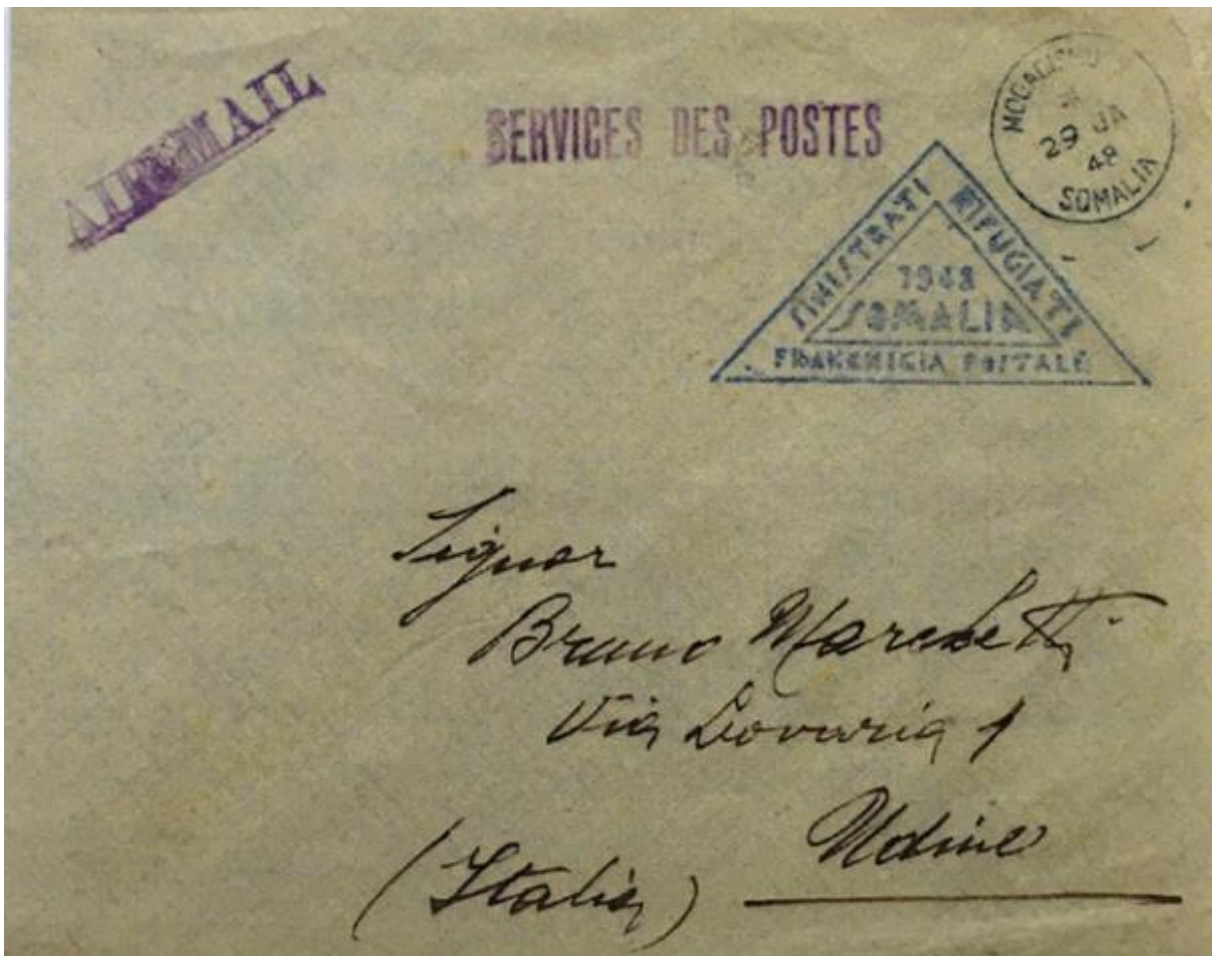 AIR MAIL
SERVICES DES POSTES
MOGADISHU
29 JA
48
SOMALIA
SINISTRATI RIFUGIATI
1948
SOMALIA
FRANCHIGIA POSTALE
Signor
Bruno Marchetti
Via Lovaria 1
Udine
(Italia)